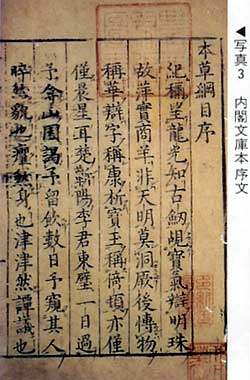 ◀写真3 内閣文庫本 序文
本草綱目序
紀稱望龍光知古劒覘寶氣辯明珠
故萍實商羊非天明莫洞厥後博物
稱華辯字稱康析寶玉稱倚頓亦僅
僅晨星耳楚蘄陽李君東璧一日過
予弇山園謁予留飲數日予窺其人
睟然貌也癯然身也津津然譚議也